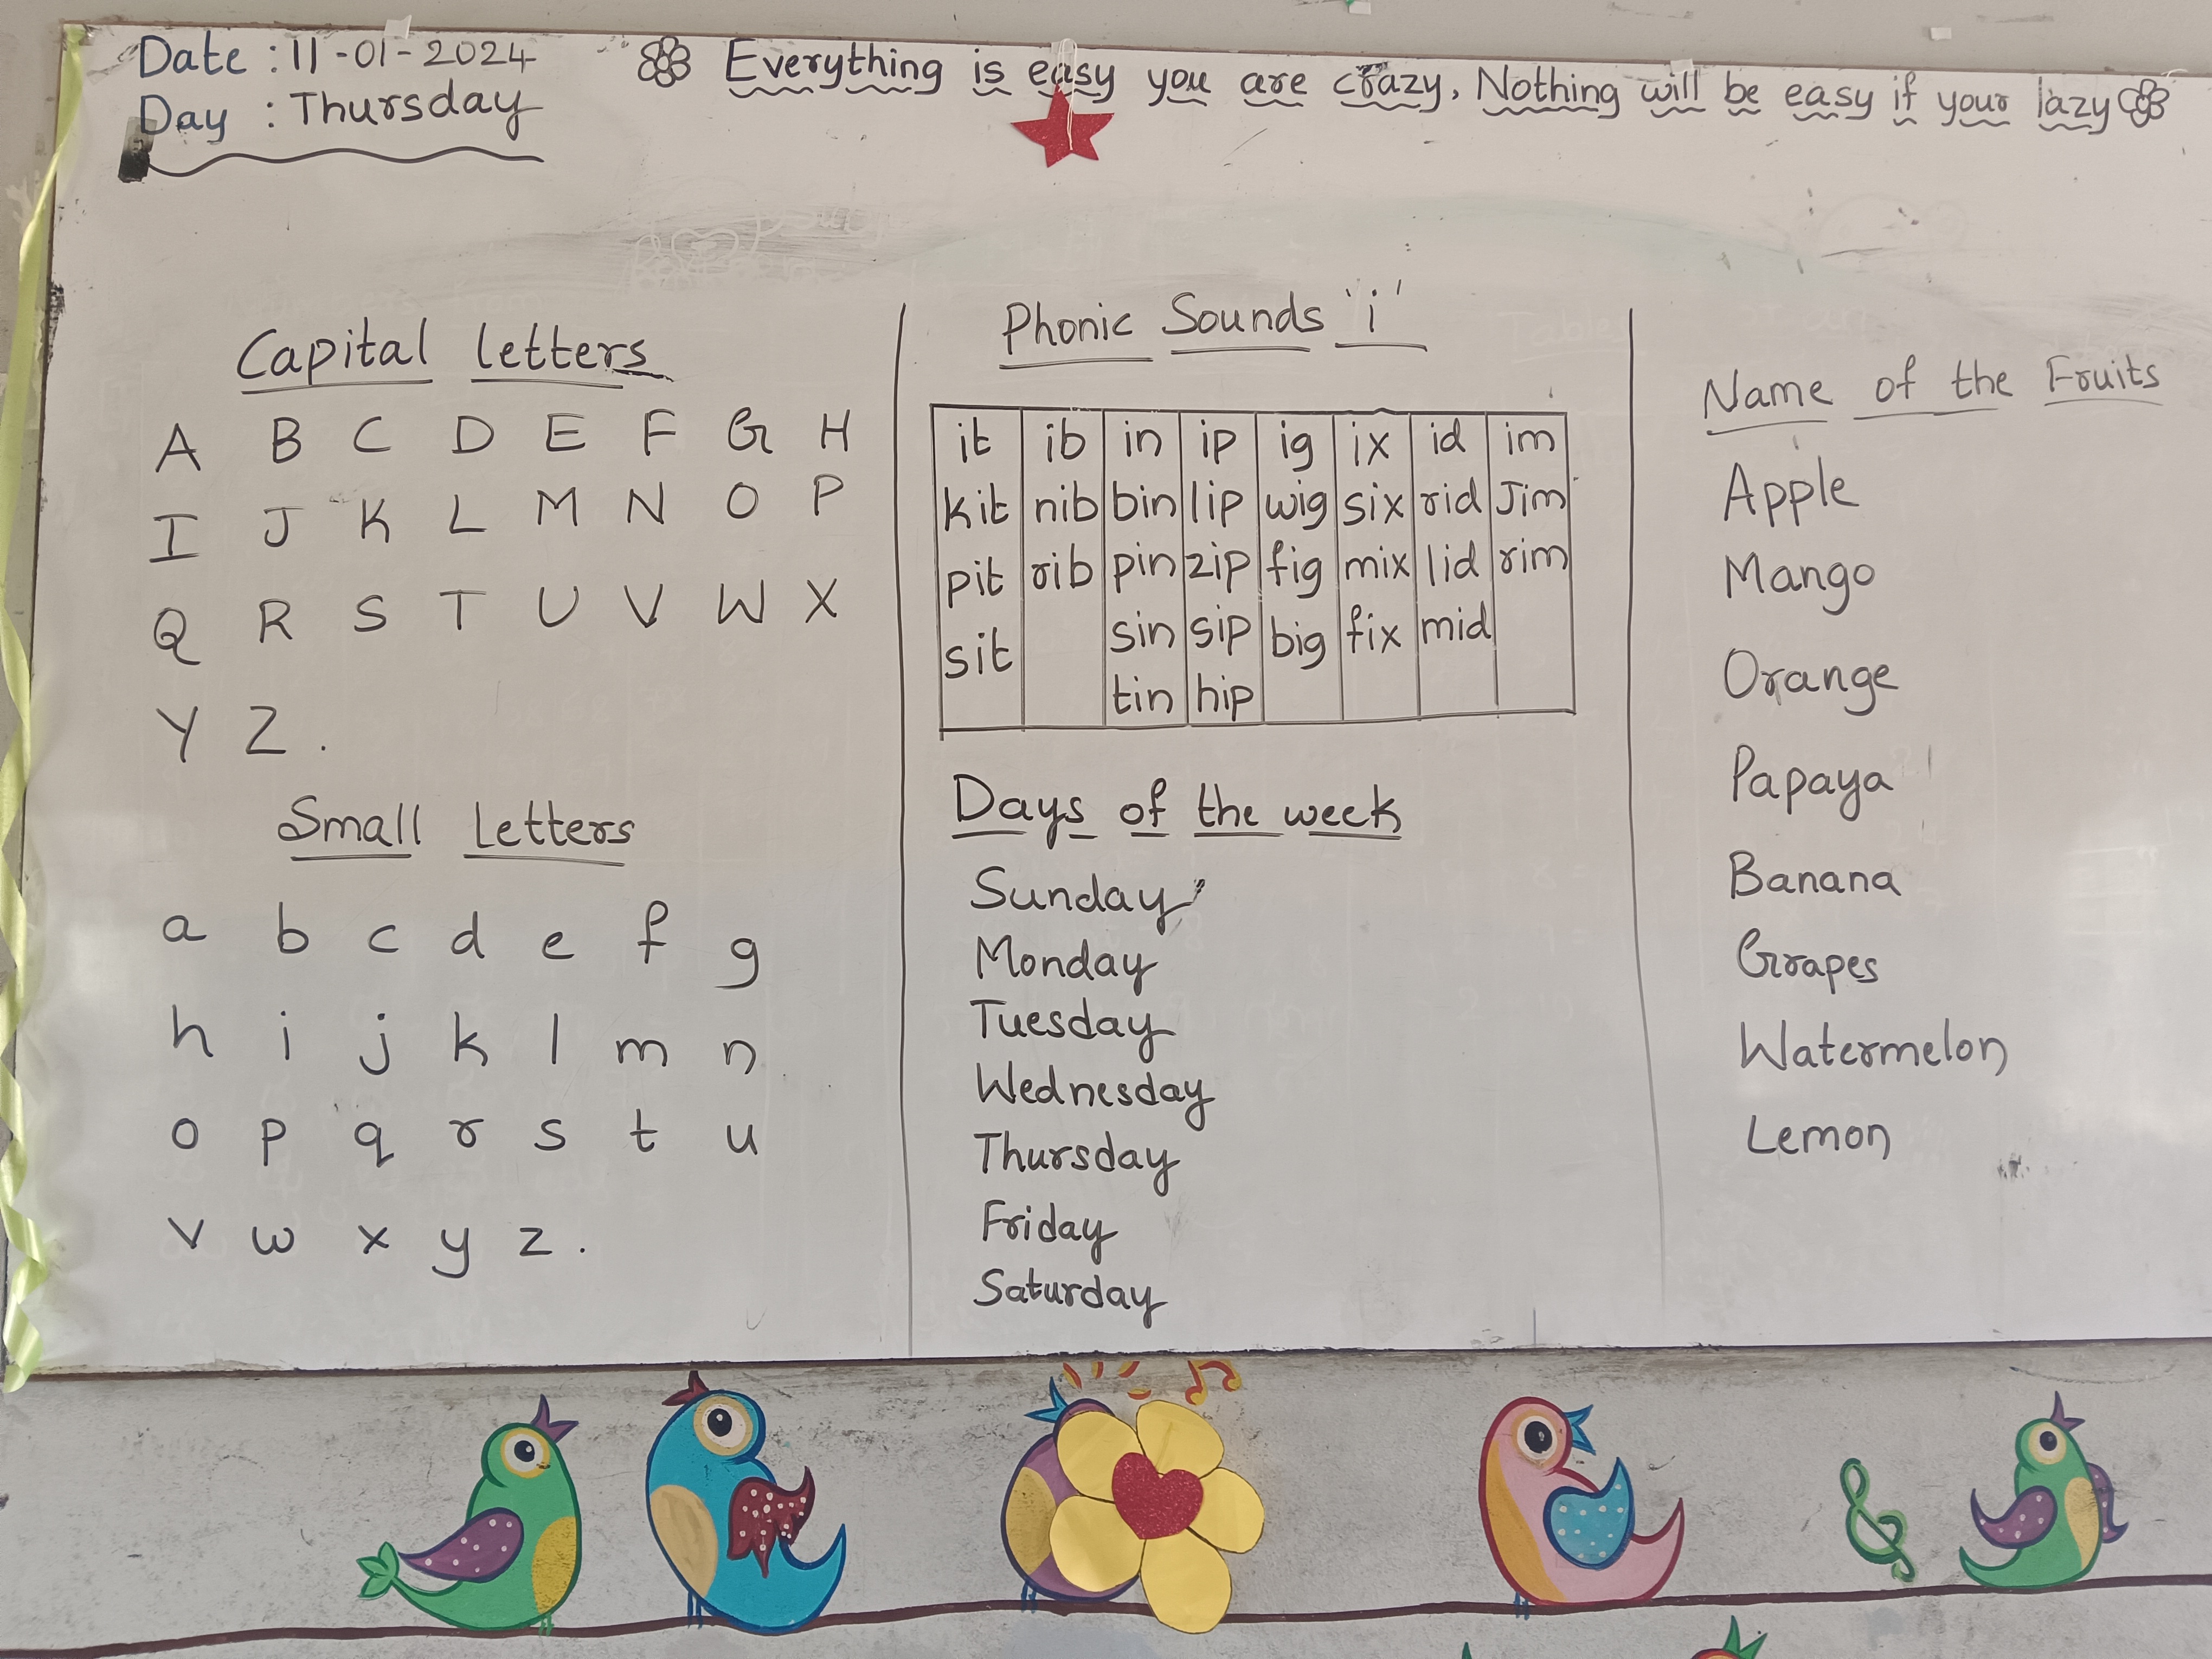 Date : 11-01-2024
Day : Thursday
Everything is easy you are crazy, Nothing will be easy if your lazy
Capital letters
A B C D E F G H
I J K L M N O P
Q R S T U V W X
Y Z .
Small letters
a b c d e f g
h i j k l m n
o p q r s t u
v w x y z .
Phonic Sounds 'i'
it ib in ip ig ix id im
kit nib bin lip wig six rid Jim
pit rib pin zip fig mix lid rim
sit sin sip big fix mid
tin hip
Days of the week
Sunday
Monday
Tuesday
Wednesday
Thursday
Friday
Saturday
Name of the Fruits
Apple
Mango
Orange
Papaya
Banana
Grapes
Watermelon
Lemon